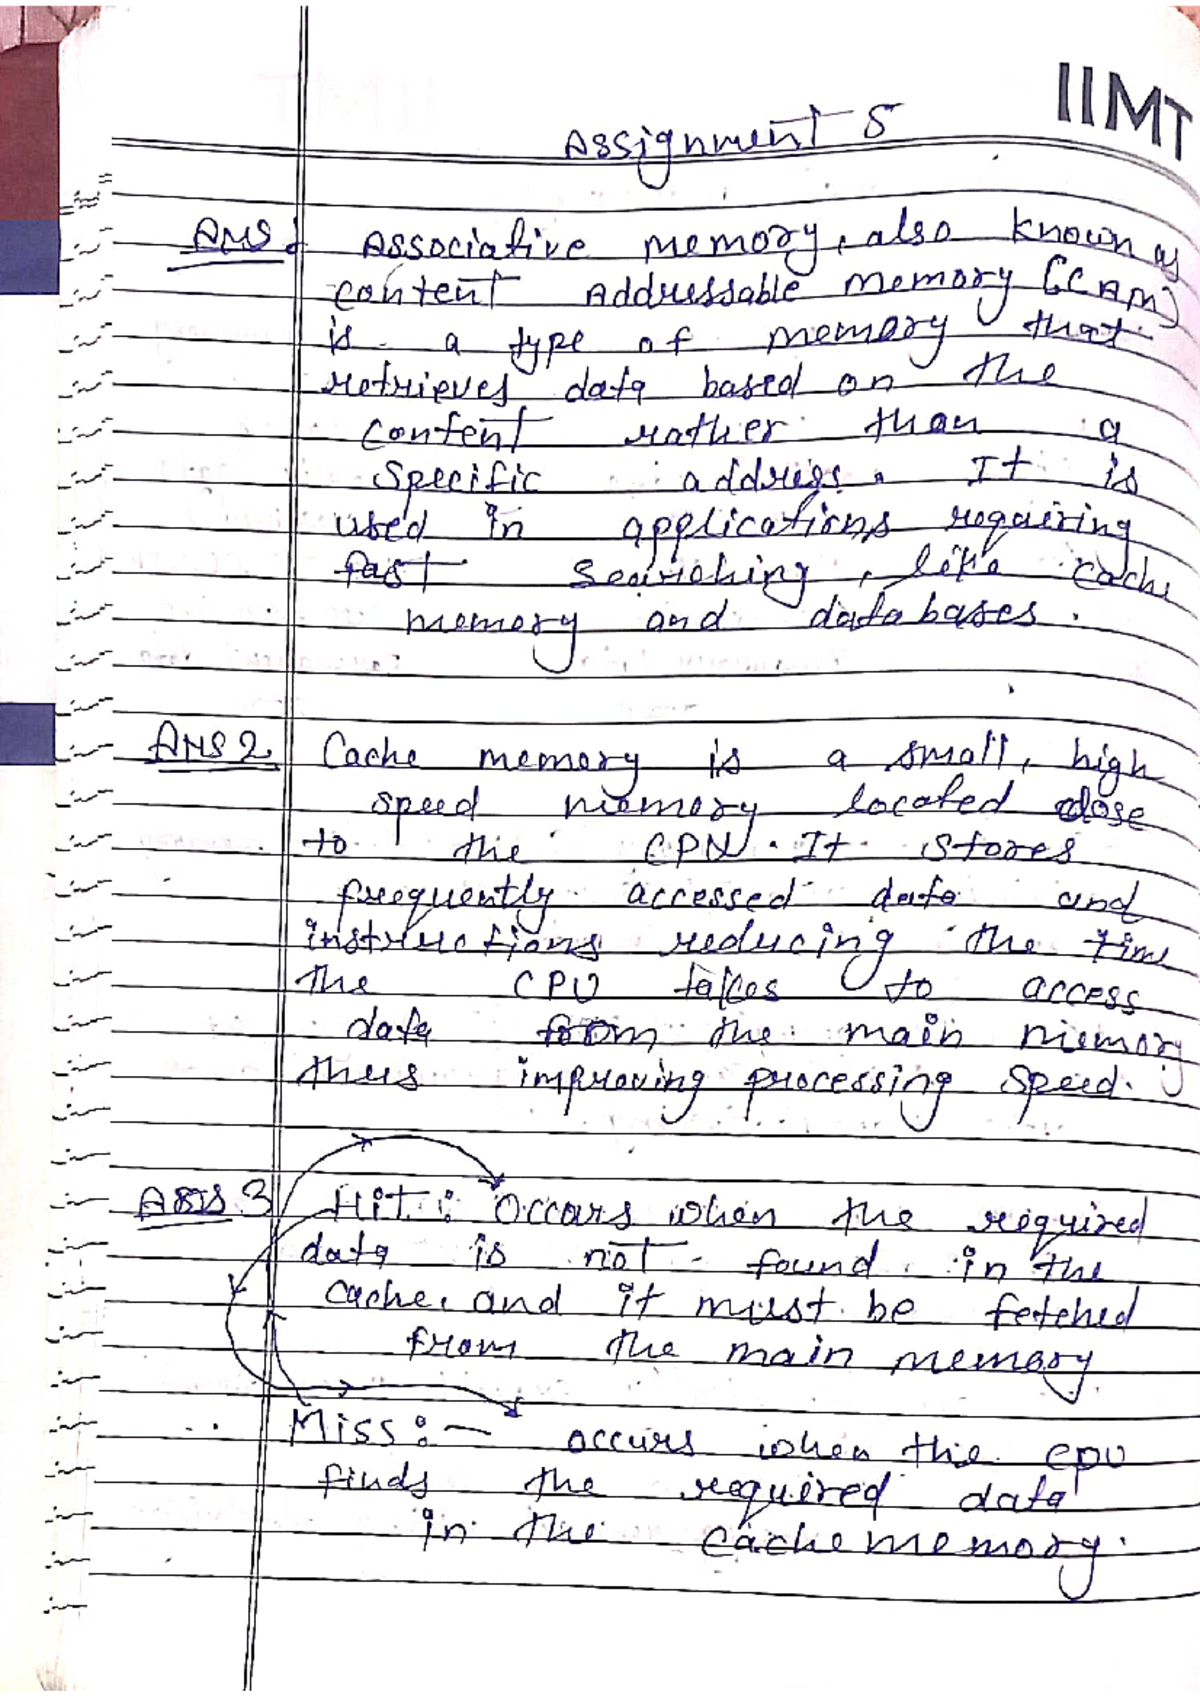 IIMT
Assignment 5
Ans: Associative memory, also known as
content Addressable memory (CAM)
is a type of memory that
retrieves data based on the
content rather than a
specific address. It is
used in applications requiring
fast searching, like cache
memory and databases.
Ans 2 Cache memory is a small, high
speed memory located close
to the CPU. It stores
frequently accessed data and
instructions reducing the time
the CPU takes to access
data from the main memory
thus improving processing speed.
Ans 3 Hit: Occurs when the required
data is not found in the
cache, and it must be fetched
from the main memory
Miss:- occurs when the cpu
finds the required data
in the cache memory.